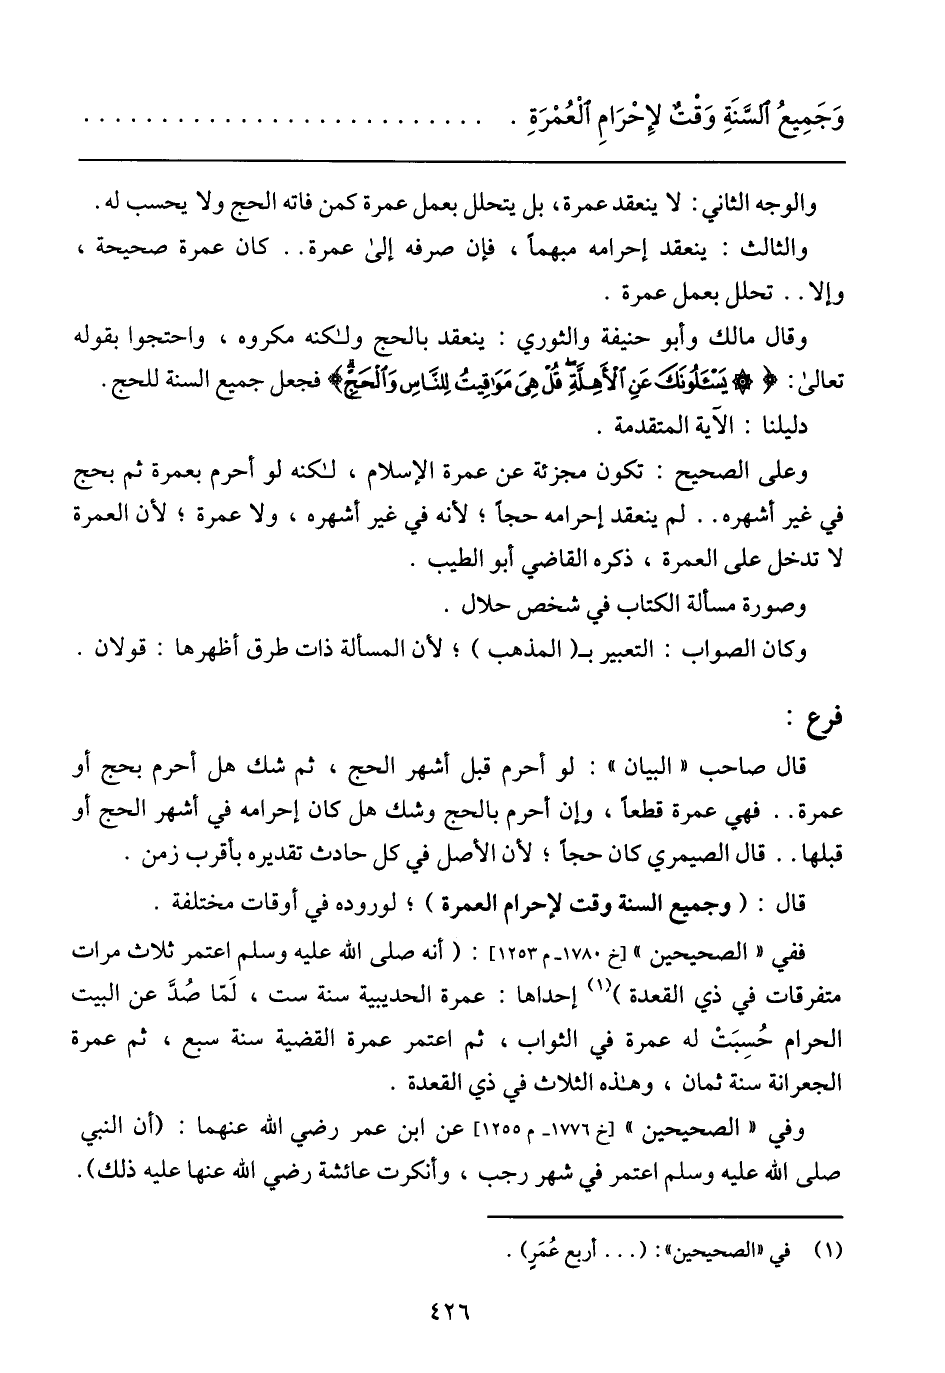 وَجَمِيعُ ٱلسَّنَةِ وَقْتٌ لِإِحْرَامِ ٱلْعُمْرَةِ . . . . . . . . . . . . . . . . . . . . . . . . . . .
والوجه الثاني: لا ينعقد عمرة، بل يتحلل بعمل عمرة كمن فاته الحج ولا يحسب له.
والثالث : ينعقد إحرامه مبهماً ، فإن صرفه إلىٰ عمرة.. كان عمرة صحيحة ،
وإلا.. تحلل بعمل عمرة .
وقال مالك وأبو حنيفة والثوري : ينعقد بالحج ولـٰكنه مكروه ، واحتجوا بقوله
تعالىٰ: ﴿ ۞ يَسْـَٔلُونَكَ عَنِ ٱلْأَهِلَّةِ ۖ قُلْ هِىَ مَوَٰقِيتُ لِلنَّاسِ وَٱلْحَجِّ ۗ﴾ فجعل جميع السنة للحج.
دليلنا : الآية المتقدمة .
وعلى الصحيح : تكون مجزئة عن عمرة الإسلام ، لـٰكنه لو أحرم بعمرة ثم بحج
في غير أشهره.. لم ينعقد إحرامه حجاً ؛ لأنه في غير أشهره ، ولا عمرة ؛ لأن العمرة
لا تدخل على العمرة ، ذكره القاضي أبو الطيب .
وصورة مسألة الكتاب في شخص حلال .
وكان الصواب : التعبير بـ( المذهب ) ؛ لأن المسألة ذات طرق أظهرها : قولان .
فرع :
قال صاحب « البيان » : لو أحرم قبل أشهر الحج ، ثم شك هل أحرم بحج أو
عمرة.. فهي عمرة قطعاً ، وإن أحرم بالحج وشك هل كان إحرامه في أشهر الحج أو
قبلها.. قال الصيمري كان حجاً ؛ لأن الأصل في كل حادث تقديره بأقرب زمن .
قال : ( وجميع السنة وقت لإحرام العمرة ) ؛ لوروده في أوقات مختلفة .
ففي « الصحيحين » [خ ١٧٨٠ـ م ١٢٥٣] : ( أنه صلى الله عليه وسلم اعتمر ثلاث مرات
متفرقات في ذي القعدة )(١) إحداها : عمرة الحديبية سنة ست ، لَمّا صُدَّ عن البيت
الحرام حُسِبَتْ له عمرة في الثواب ، ثم اعتمر عمرة القضية سنة سبع ، ثم عمرة
الجعرانة سنة ثمان ، وهـٰذه الثلاث في ذي القعدة .
وفي « الصحيحين » [خ ١٧٧٦ـ م ١٢٥٥] عن ابن عمر رضي الله عنهما : (أن النبي
صلى الله عليه وسلم اعتمر في شهر رجب ، وأنكرت عائشة رضي الله عنها عليه ذلك).
(١) في «الصحيحين»: (... أربع عُمَرٍ) .
٤٢٦